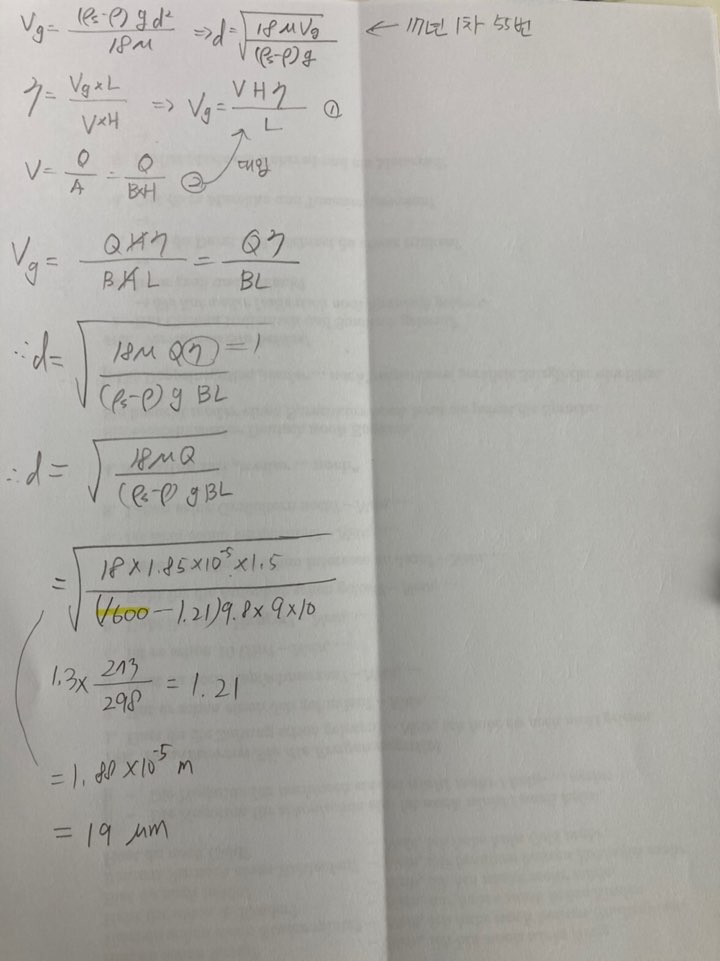 Vg = (ρs-ρ) g d² / 18μ ⇒ d = √(18μVg / (ρs-ρ)g) ← 17년 1차 55번
η = Vg×L / V×H ⇒ Vg = VHη / L ①
V = Q/A = Q/B×H ② 대입
Vg = QHη / BHL = Qη / BL
∴ d = √(18μ Qη / (ρs-ρ) g BL) = 1
∴ d = √(18μQ / (ρs-ρ) gBL)
= √(18×1.85×10⁻⁵×1.5 / (1600-1.21)9.8×9×10)
1.3× 273/298 = 1.21
= 1.88×10⁻⁵ m
= 19 μm